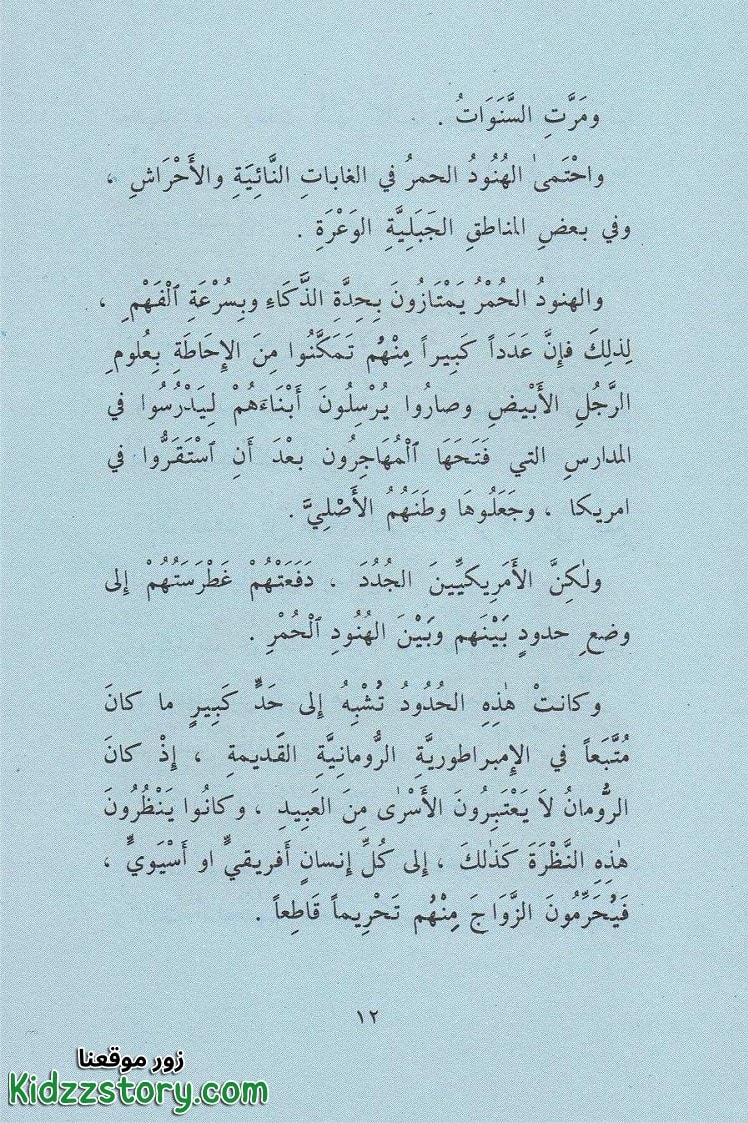 ومَرَّتِ السَّنَوَاتُ .
واحْتَمىٰ الهُنُودُ الحمرُ في الغاباتِ النَّائِيَةِ والأَحْرَاشِ ،
وفي بعضِ المناطقِ الجَبَلِيَّةِ الوَعْرَةِ .
والهنودُ الحُمْرُ يَمْتَازُونَ بِحِدَّةِ الذَّكَاءِ وبِسُرْعَةِ ٱلْفَهْمِ ،
لِذلِكَ فإنَّ عَدَداً كَبِيراً مِنْهُم تَمَكَّنُوا مِنَ الإِحَاطَةِ بِعُلومِ
الرَّجُلِ الأَبْيضِ وصارُوا يُرْسِلُونَ أَبْنَاءَهُمْ لِيَدْرُسُوا في
المدارسِ التي فَتَحَهَا ٱلْمُهَاجِرُون بعْدَ أَنِ ٱسْتَقَرُّوا في
امريكا ، وجَعَلُوهَا وطَنَهُمُ الأَصْلِيَّ .
ولٰكِنَّ الأَمَرِيكيِّينَ الجُدُدَ ، دَفَعَتْهُمْ غَطْرَسَتُهُمْ إلى
وضعِ حدودٍ بَيْنَهم وبَيْنَ الهُنُودِ ٱلْحُمْرِ .
وكانتْ هٰذِهِ الحُدُودُ تُشْبِهُ إلى حَدٍّ كَبِيرٍ ما كانَ
مُتَّبَعاً في الإِمبراطوريَّةِ الرُّومانِيَّةِ القَديمةِ ، إذْ كانَ
الرُّومانُ لاَ يَعْتَبِرُونَ الأَسْرٰى مِنَ العَبِيدِ ، وكانُوا يَنْظُرُونَ
هٰذِهِ النَّظْرَةَ كَذٰلكَ ، إلى كُلِّ إنسانٍ أَفريقيٍّ او أَسْيَويٍّ ،
فَيُحَرِّمُونَ الزَّوَاجَ مِنْهُم تَحْرِيماً قَاطِعاً .
١٢
زور موقعنا
Kidzzstory.com